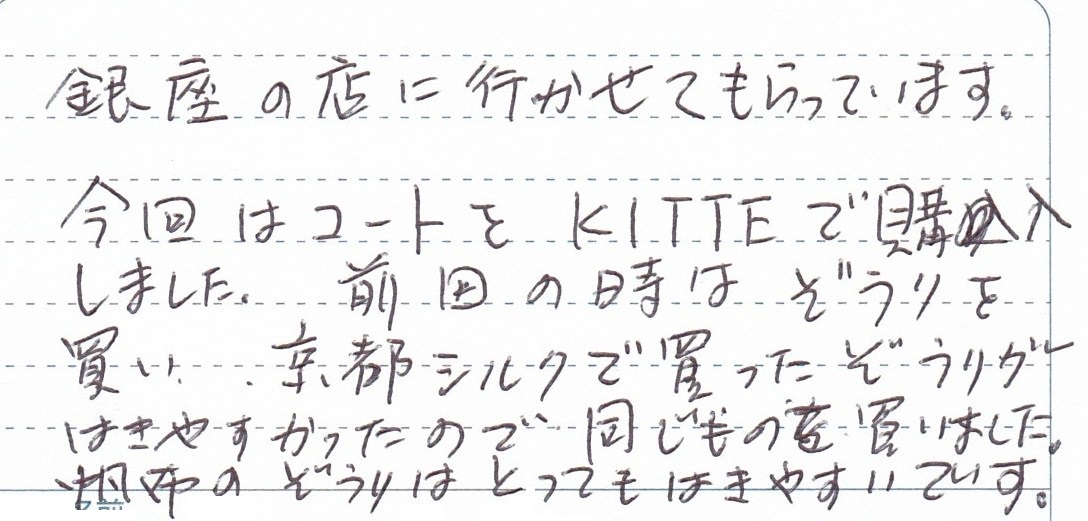 銀座の店に行かせてもらっています。
今回はコートをKITTEで購入
しました。前回の時はぞうりを
買い、京都シルクで買ったぞうりが
はきやすかったので同じもの買いました。
のぞうりはとってもはきやすいです。